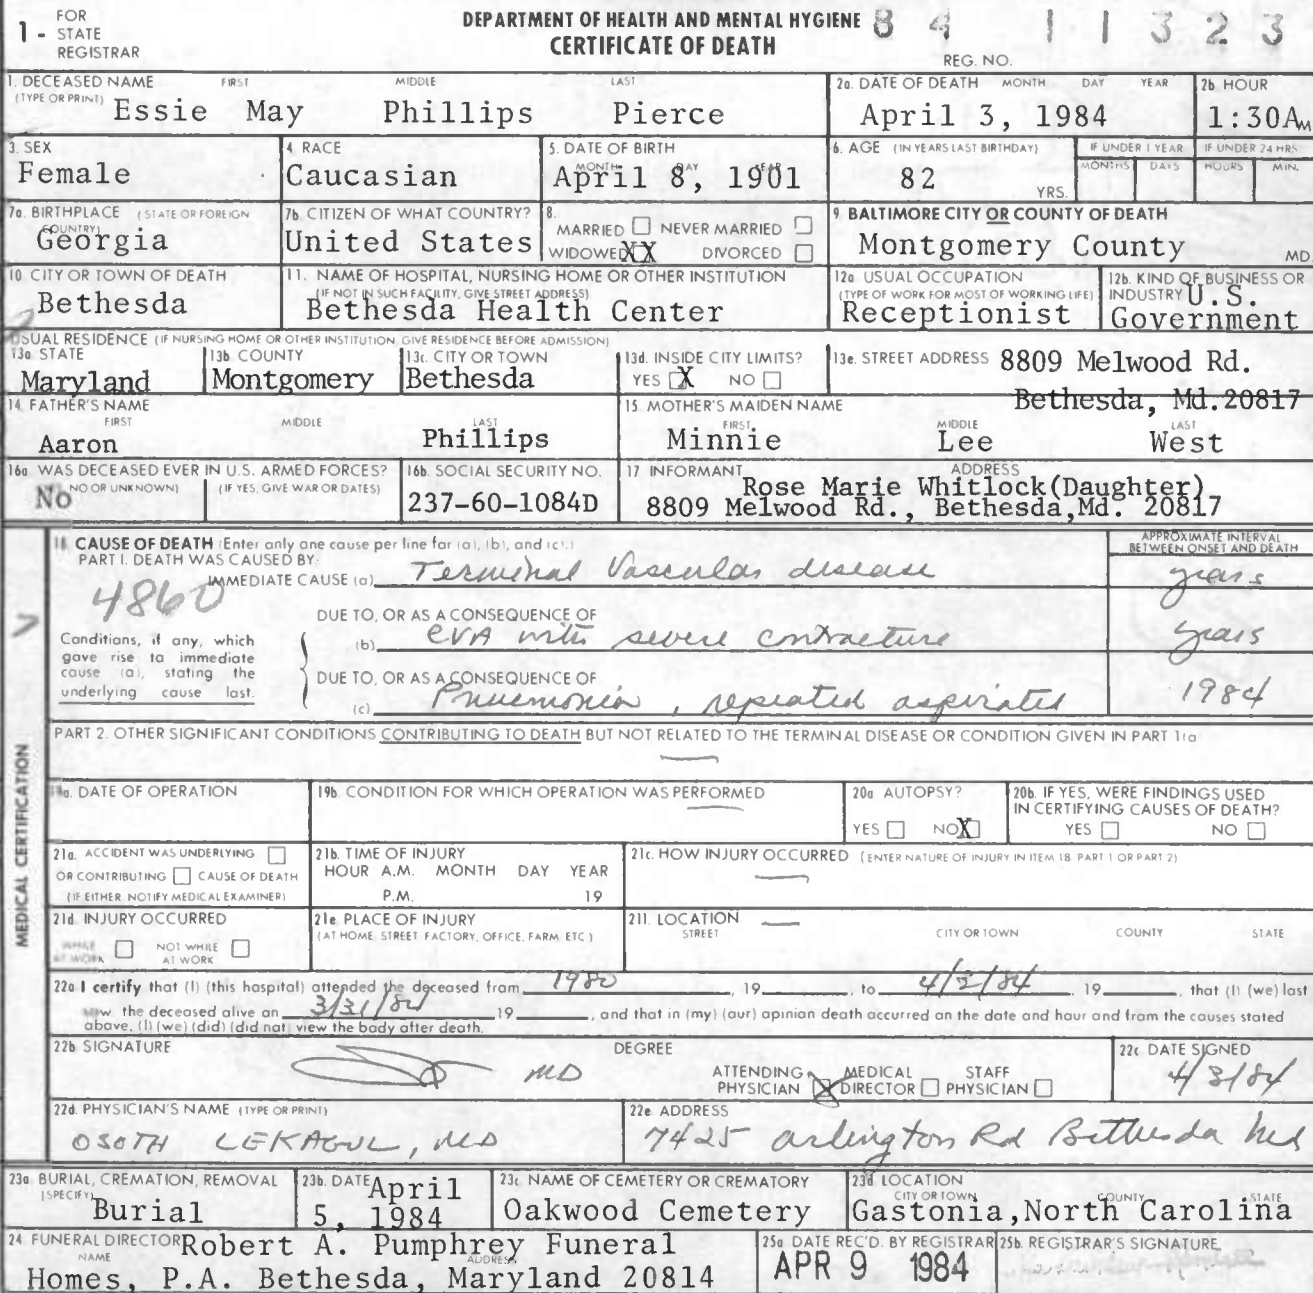 1 - FOR STATE REGISTRAR
DEPARTMENT OF HEALTH AND MENTAL HYGIENE
CERTIFICATE OF DEATH
84 11323
REG. NO.
1. DECEASED NAME FIRST MIDDLE LAST
(TYPE OR PRINT) Essie May Phillips Pierce
2a. DATE OF DEATH MONTH DAY YEAR
April 3, 1984
2b. HOUR
1:30A M
3. SEX
Female
4. RACE
Caucasian
5. DATE OF BIRTH
MONTH DAY YEAR
April 8, 1901
6. AGE (IN YEARS LAST BIRTHDAY)
82 YRS.
IF UNDER 1 YEAR
MONTHS DAYS
IF UNDER 24 HRS
HOURS MIN.
7a. BIRTHPLACE (STATE OR FOREIGN COUNTRY)
Georgia
7b. CITIZEN OF WHAT COUNTRY?
United States
8.
MARRIED NEVER MARRIED
WIDOWED XX DIVORCED
9. BALTIMORE CITY OR COUNTY OF DEATH
Montgomery County MD.
10. CITY OR TOWN OF DEATH
Bethesda
11. NAME OF HOSPITAL, NURSING HOME OR OTHER INSTITUTION
(IF NOT IN SUCH FACILITY, GIVE STREET ADDRESS)
Bethesda Health Center
12a. USUAL OCCUPATION
(TYPE OF WORK FOR MOST OF WORKING LIFE)
Receptionist
12b. KIND OF BUSINESS OR INDUSTRY
U.S. Government
USUAL RESIDENCE (IF NURSING HOME OR OTHER INSTITUTION GIVE RESIDENCE BEFORE ADMISSION)
13a. STATE
Maryland
13b. COUNTY
Montgomery
13c. CITY OR TOWN
Bethesda
13d. INSIDE CITY LIMITS?
YES X NO
13e. STREET ADDRESS 8809 Melwood Rd.
Bethesda, Md.20817
14. FATHER'S NAME
FIRST MIDDLE LAST
Aaron Phillips
15. MOTHER'S MAIDEN NAME
FIRST MIDDLE LAST
Minnie Lee West
16a. WAS DECEASED EVER IN U.S. ARMED FORCES?
NO OR UNKNOWN) (IF YES, GIVE WAR OR DATES)
No
16b. SOCIAL SECURITY NO.
237-60-1084D
17. INFORMANT ADDRESS
Rose Marie Whitlock(Daughter)
8809 Melwood Rd., Bethesda,Md. 20817
MEDICAL CERTIFICATION
18. CAUSE OF DEATH (Enter only one cause per line for (a), (b), and (c).)
APPROXIMATE INTERVAL BETWEEN ONSET AND DEATH
PART I. DEATH WAS CAUSED BY:
IMMEDIATE CAUSE (a) Terminal Vascular disease years
4860
DUE TO, OR AS A CONSEQUENCE OF
(b) CVA with severe contracture years
Conditions, if any, which gave rise to immediate cause (a), stating the underlying cause last.
DUE TO, OR AS A CONSEQUENCE OF
(c) Pneumonia, repeated aspirated 1984
PART 2. OTHER SIGNIFICANT CONDITIONS CONTRIBUTING TO DEATH BUT NOT RELATED TO THE TERMINAL DISEASE OR CONDITION GIVEN IN PART 1(a
19a. DATE OF OPERATION
19b. CONDITION FOR WHICH OPERATION WAS PERFORMED
20a. AUTOPSY?
YES NO X
20b. IF YES, WERE FINDINGS USED IN CERTIFYING CAUSES OF DEATH?
YES NO
21a. ACCIDENT WAS UNDERLYING
OR CONTRIBUTING CAUSE OF DEATH
(IF EITHER NOTIFY MEDICAL EXAMINER)
21b. TIME OF INJURY
HOUR A.M. MONTH DAY YEAR
P.M. 19
21c. HOW INJURY OCCURRED (ENTER NATURE OF INJURY IN ITEM 18 PART 1 OR PART 2)
21d. INJURY OCCURRED
WHILE AT WORK NOT WHILE AT WORK
21e. PLACE OF INJURY
(AT HOME, STREET, FACTORY, OFFICE, FARM, ETC.)
21f. LOCATION
STREET CITY OR TOWN COUNTY STATE
22a. I certify that (I) (this hospital) attended the deceased from 1980, 19 , to 4/2/84 19 , that (I) (we) last
saw the deceased alive on 3/31/84 19 , and that in (my) (our) opinion death occurred on the date and hour and from the causes stated
above, (I) (we) (did) (did not) view the body after death.
22b. SIGNATURE DEGREE
MD
ATTENDING PHYSICIAN X MEDICAL DIRECTOR STAFF PHYSICIAN
22c. DATE SIGNED
4/3/84
22d. PHYSICIAN'S NAME (TYPE OR PRINT)
OSOTH LEKAGUL, MD
22e. ADDRESS
7425 Arlington Rd Bethesda Md
23a. BURIAL, CREMATION, REMOVAL
(SPECIFY)
Burial
23b. DATE April
5, 1984
23c. NAME OF CEMETERY OR CREMATORY
Oakwood Cemetery
23d. LOCATION
CITY OR TOWN COUNTY STATE
Gastonia, North Carolina
24. FUNERAL DIRECTOR Robert A. Pumphrey Funeral
NAME ADDRESS
Homes, P.A. Bethesda, Maryland 20814
25a. DATE REC'D. BY REGISTRAR
APR 9 1984
25b. REGISTRAR'S SIGNATURE